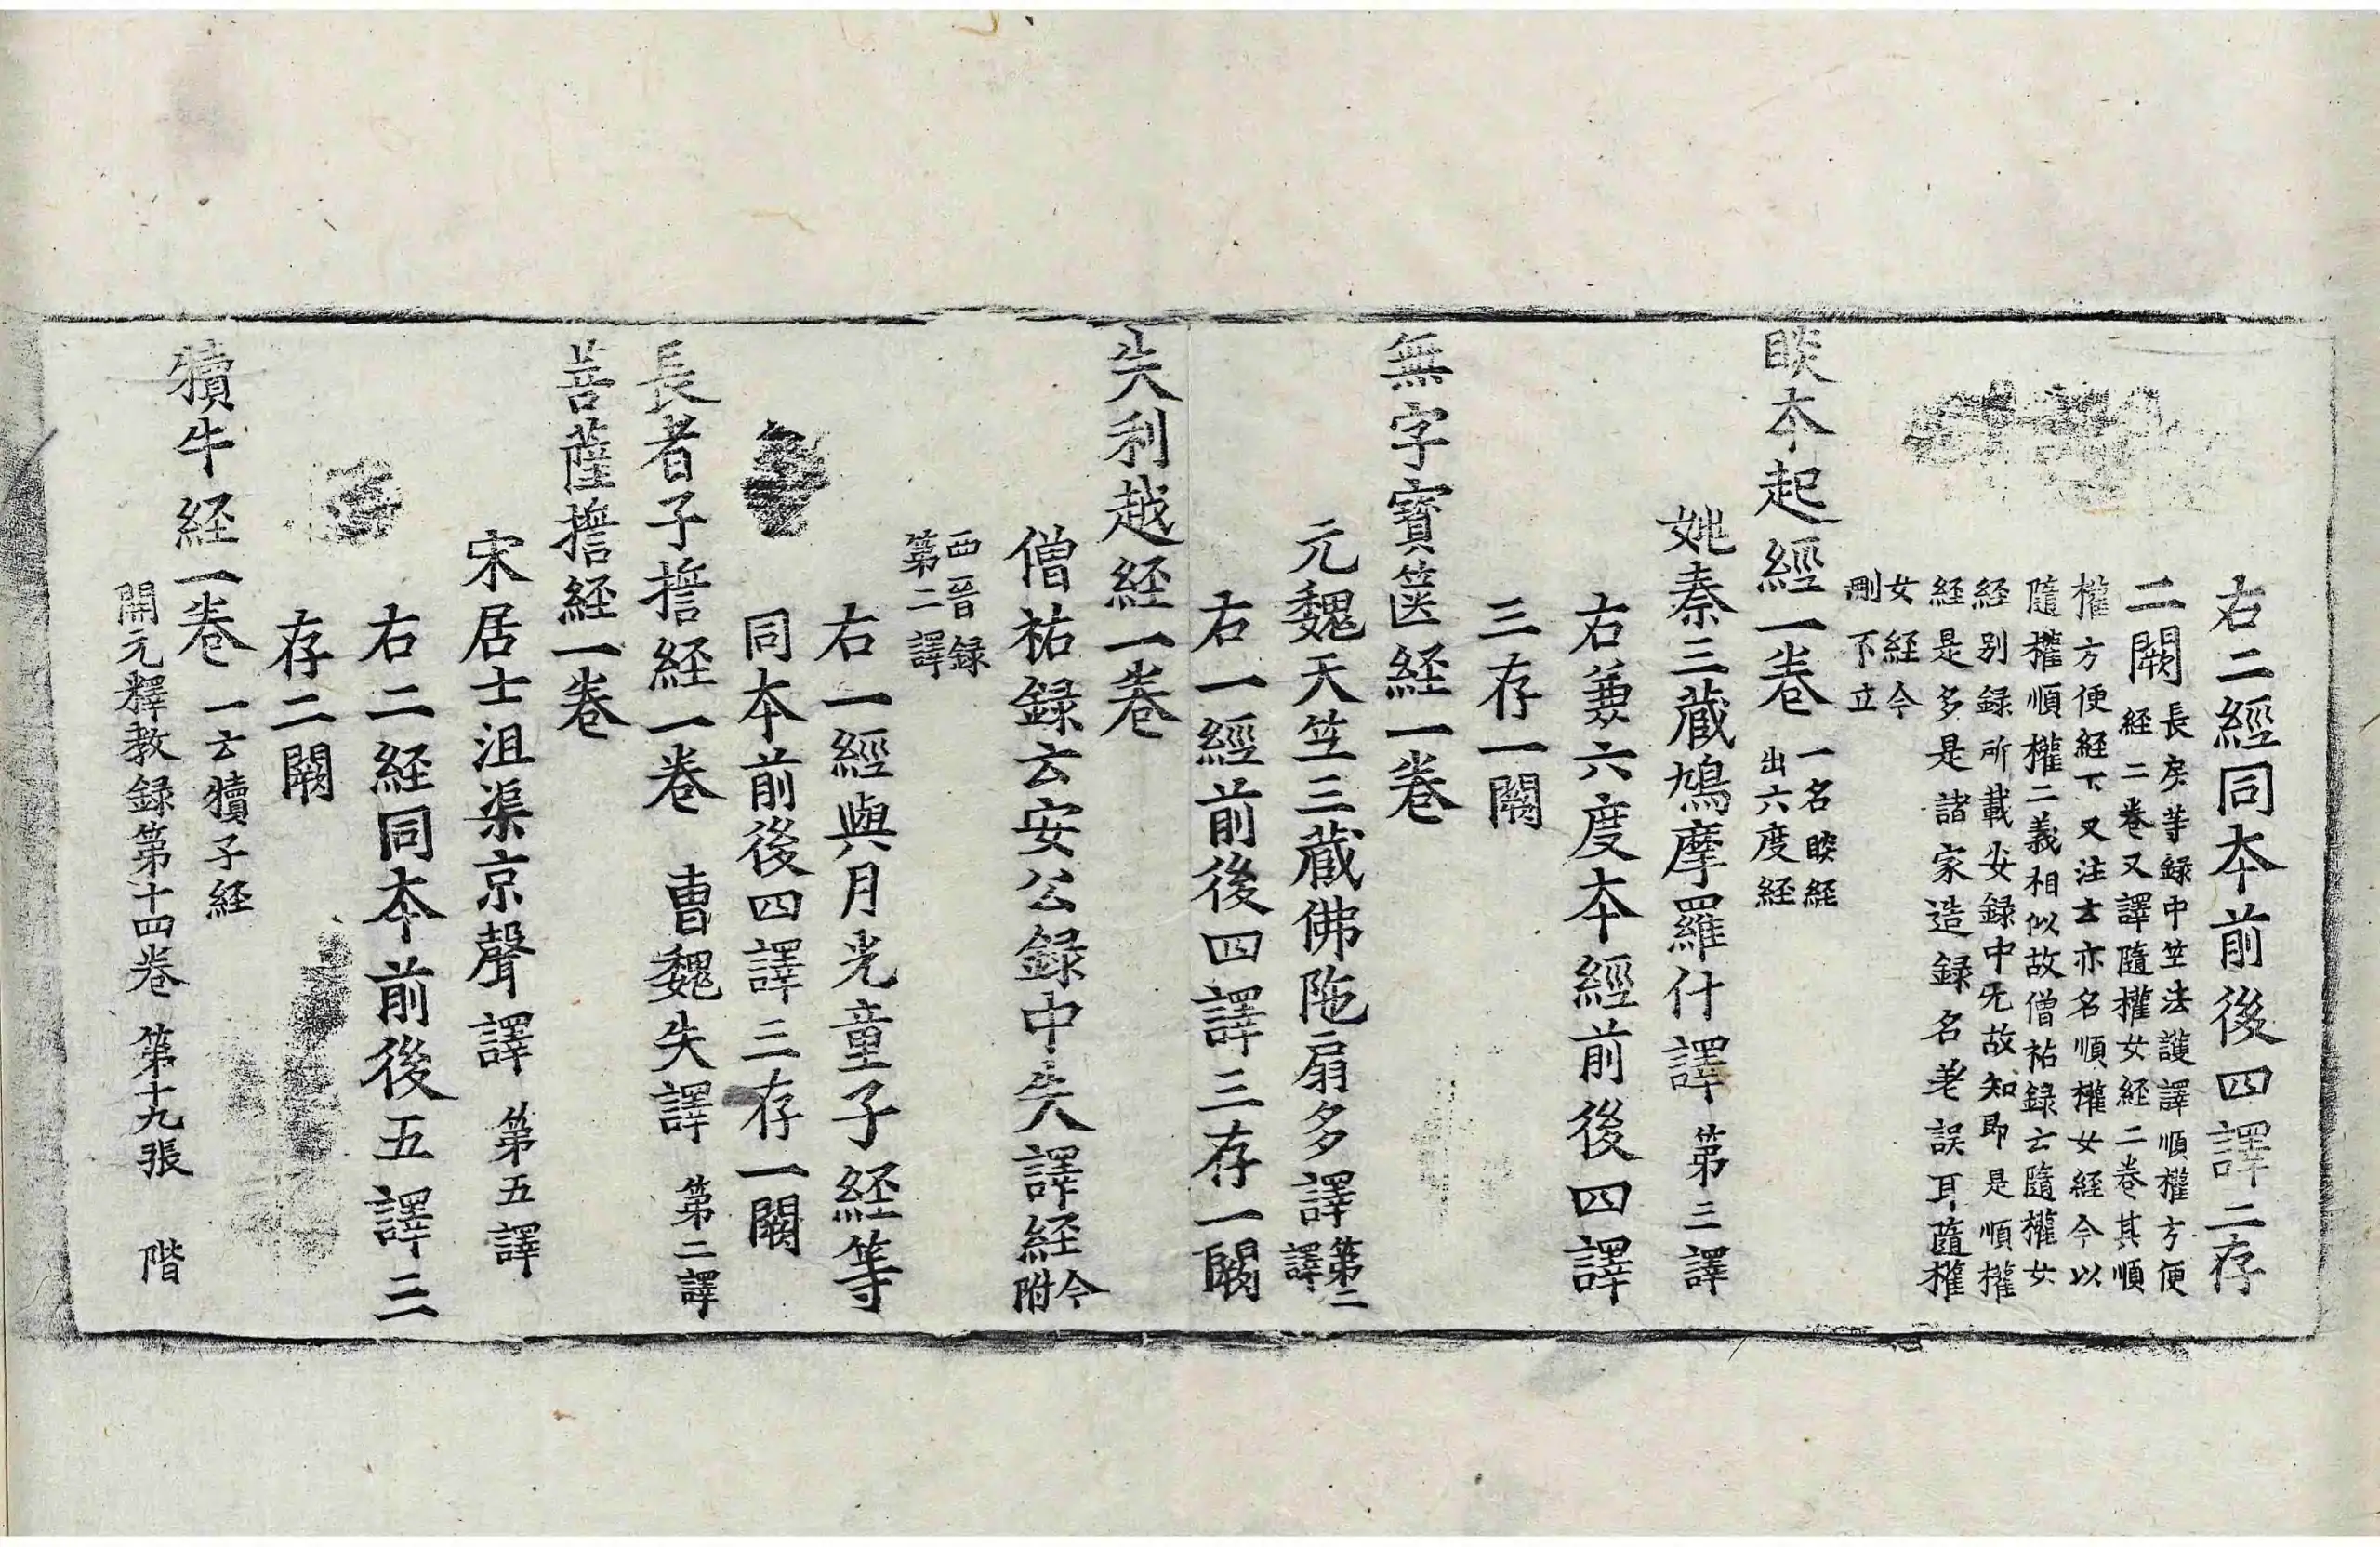 右二經同本前後四譯二存
二闕長房等録中竺法護譯順權方便
経二巻又譯隨權女経二巻其順
權方便経下又注云亦名順權女経今以
隨權順權二義相似故僧祐録云隨權女
経别録所載安録中无故知即是順權
経是多是諸家造録名差誤耳隨權
女経今
刪不立
睒本起經一巻一名睒経
出六度経
姚秦三藏鳩摩羅什譯第三譯
右兼六度本經前後四譯
三存一闕
無字寶篋経一巻
元魏天竺三藏佛陁扇多譯第二
譯
右一經前後四譯三存一闕
失利越経一巻
僧祐録云安公録中失譯経今
附
西晉録
第二譯
右一經與月光童子経等
同本前後四譯三存一闕
長者子擔経一巻 曹魏失譯第二譯
菩薩擔経一巻
宋居士沮渠京聲譯第五譯
右二経同本前後五譯三
存二闕
犢牛経一巻一云犢子経
開元釋教録第十四巻 第十九張 階